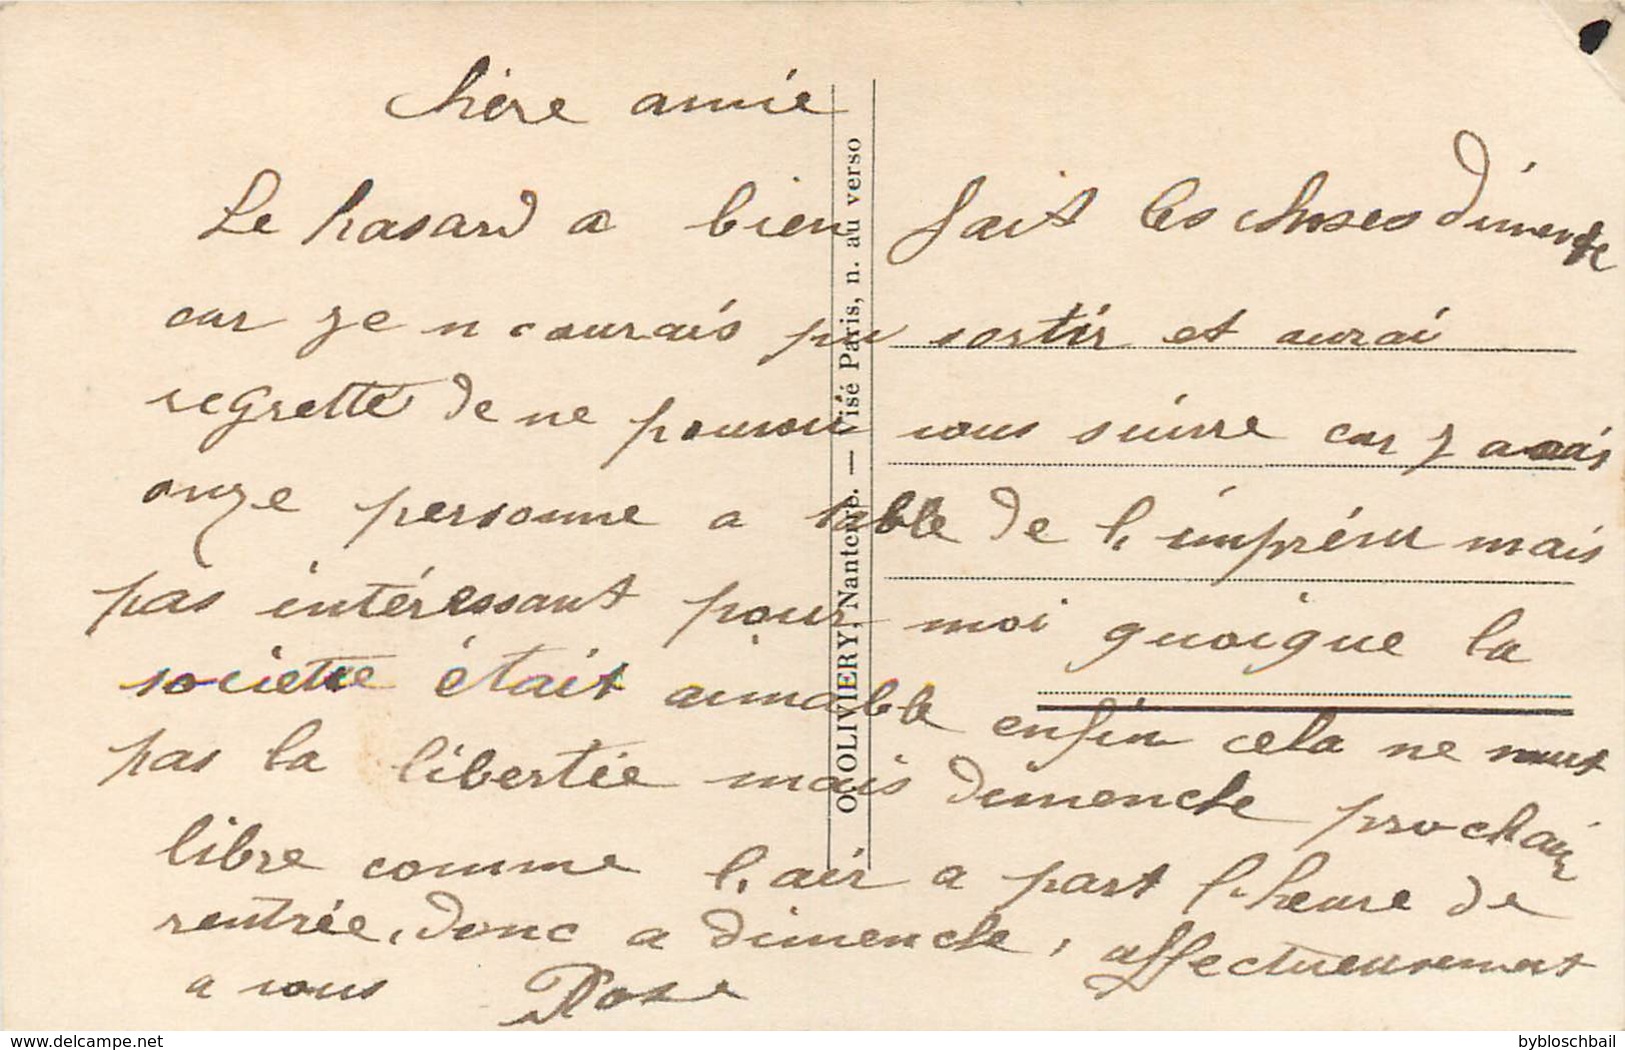 chère amie
Le hasard a bien fait les choses dimenche
car je n courais pu sortir et aurai
regretté de ne pouvoir vous suivre car j avais
onze personne a table de l, imprévu mais
pas intéressant pour moi quoique la
societée était aimable enfin cela ne
pas la libertée mais dimenche prochain
libre comme l, air a part l, heure de
rentrée, donc a dimenche, affectueusement
a vous Rose
O. OLIVIERY, Nanterre. — Visé Paris, n. au verso
delcampe.net
bybloschbail